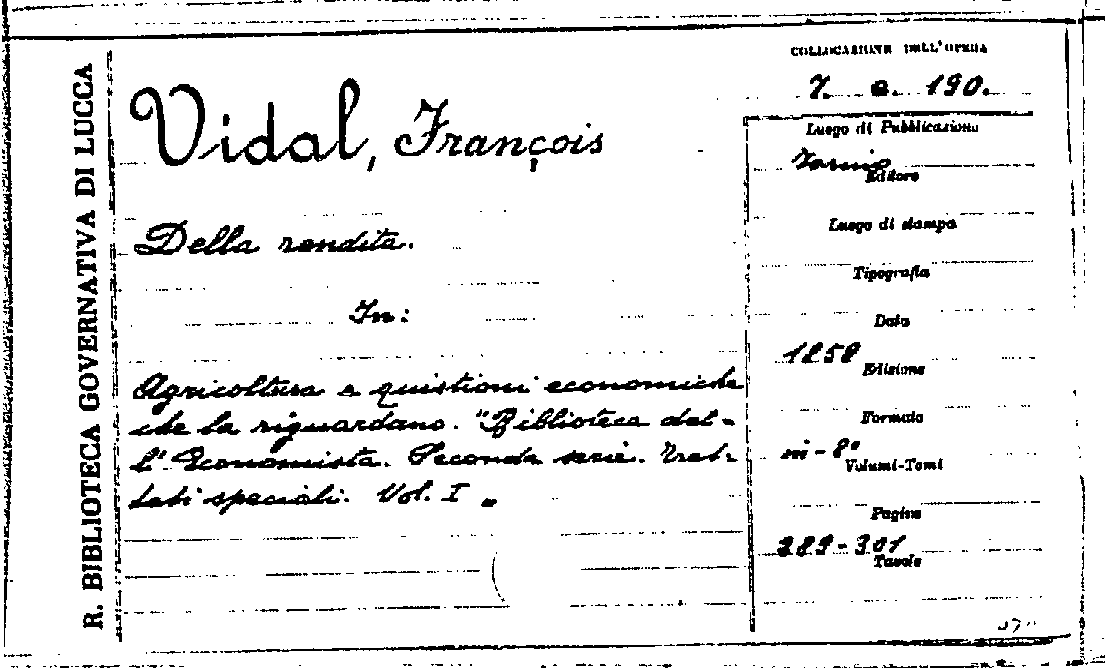 R. BIBLIOTECA GOVERNATIVA DI LUCCA
Vidal, François
Della rendita.
In:
Agricoltura e quistioni economiche
che la riguardano. "Biblioteca del-
l' Economista. Seconda serie. Trat-
tati speciali. Vol. I „
COLLOCAZIONE DELL'OPERA
7. e. 190.
Luogo di Pubblicazione
Torino
Editore
Luogo di stampa
Tipografia
Data
1858
Edizione
Formato
in-8°
Volumi-Tomi
Pagine
289-301
Tavole